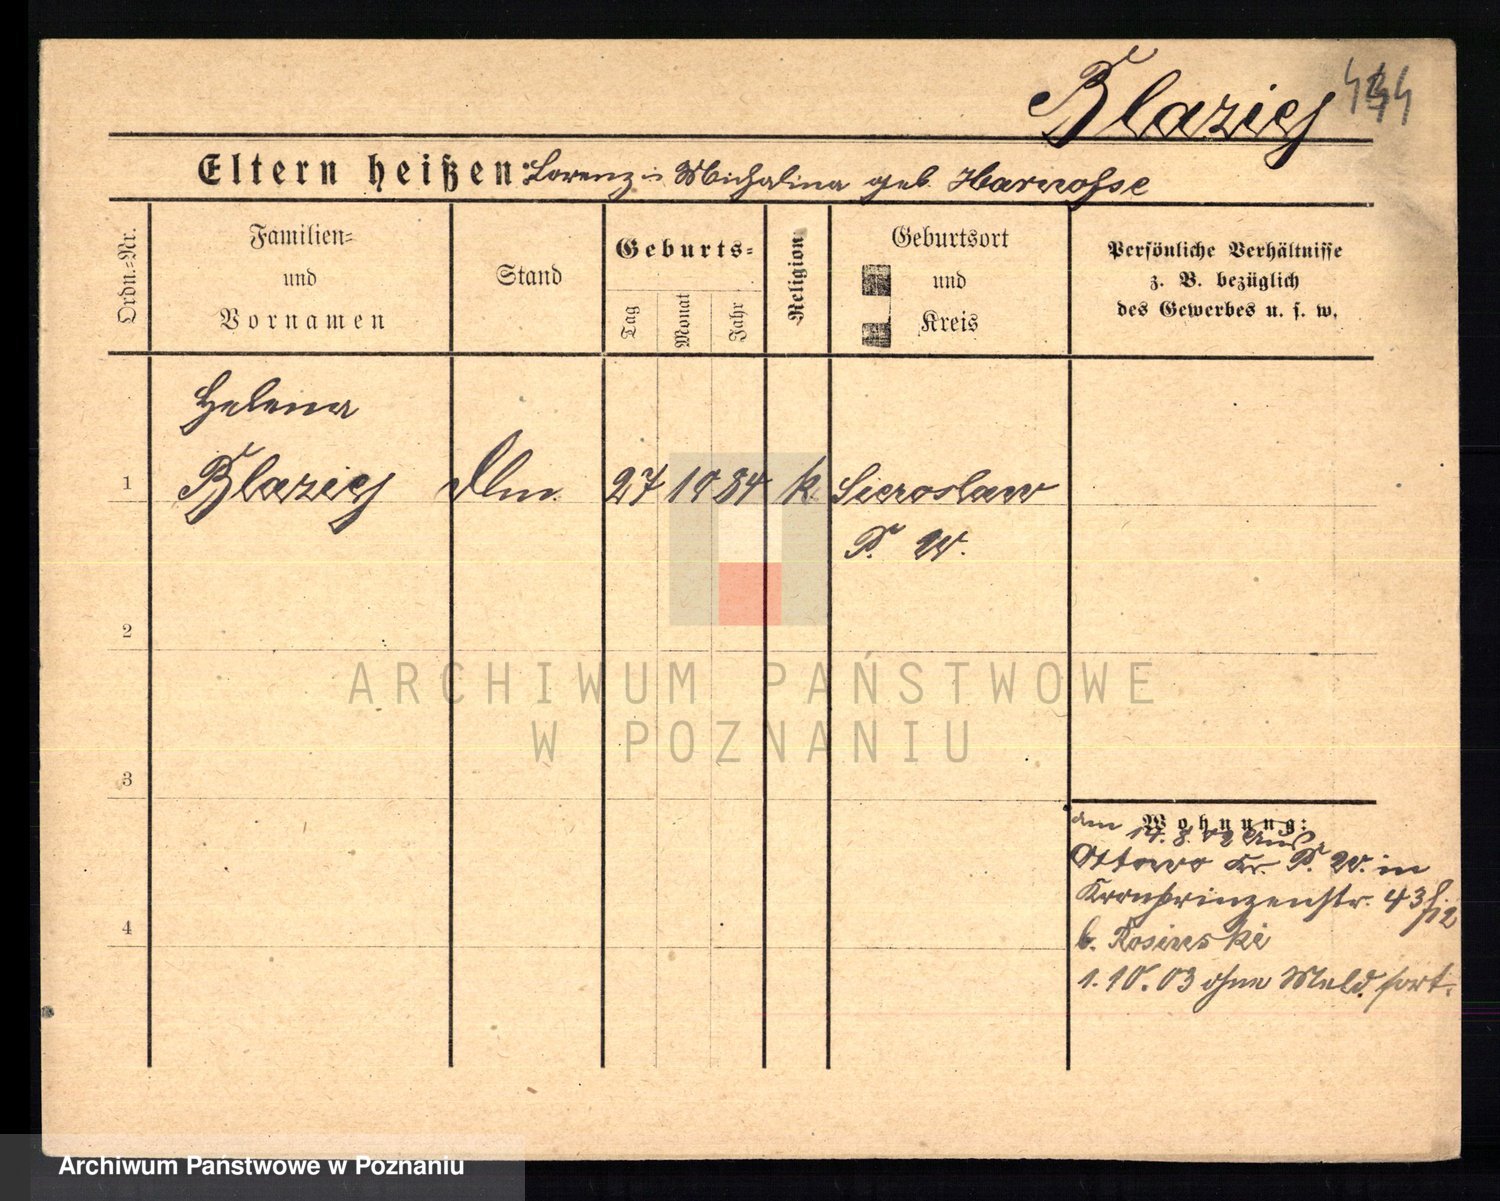 Blaziej 444
Eltern heißen: Lorenz u Michalina geb.
Ordn.=Nr.
Familien=
und
Vornamen
Stand
Geburts=
Tag
Monat
Jahr
Religion
Geburtsort
und
Kreis
Persönliche Verhältnisse
z. B. bezüglich
des Gewerbes u. s. w.
Helena
1 Blaziej 27 10 84 k. Sieroslaw
P. W.
2
3
4
Wohnung:
den 14. 8. 02 aus
Ottowo Kr. P. W. in
Kronprinzenstr. 43
b. Rosinski
1. 10. 03 ohne Meld. fort.
ARCHIWUM PAŃSTWOWE
W POZNANIU
Archiwum Państwowe w Poznaniu